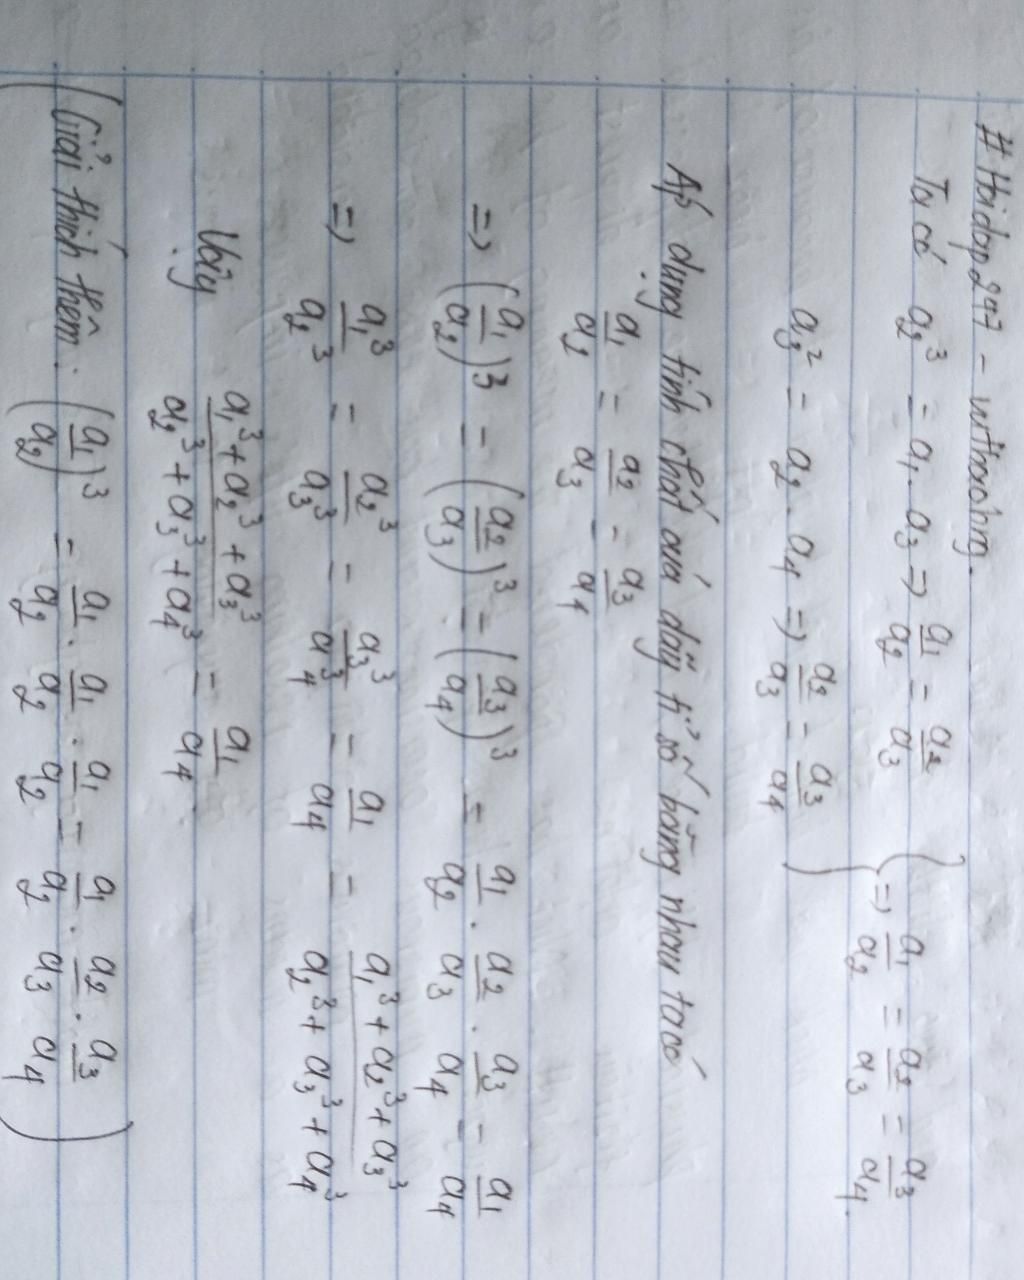 # Hoidap247 - withmashng.
Ta có a₂³ = a₁ . a₃ => a₁/a₂ = a₂/a₃
a₃² = a₂ . a₄ => a₂/a₃ = a₃/a₄ } => a₁/a₂ = a₂/a₃ = a₃/a₄.
Áp dụng tính chất của dãy tỉ số bằng nhau ta có
a₁/a₂ = a₂/a₃ = a₃/a₄
=> (a₁/a₂)³ = (a₂/a₃)³ = (a₃/a₄)³ = a₁/a₂ . a₂/a₃ . a₃/a₄ = a₁/a₄
=> a₁³/a₂³ = a₂³/a₃³ = a₃³/a₄³ = a₁/a₄ = (a₁³ + a₂³ + a₃³)/(a₂³ + a₃³ + a₄³)
Vậy (a₁³ + a₂³ + a₃³)/(a₂³ + a₃³ + a₄³) = a₁/a₄.
(Giải thích thêm: (a₁/a₂)³ = a₁/a₂ . a₁/a₂ . a₁/a₂ = a₁/a₂ . a₂/a₃ . a₃/a₄)